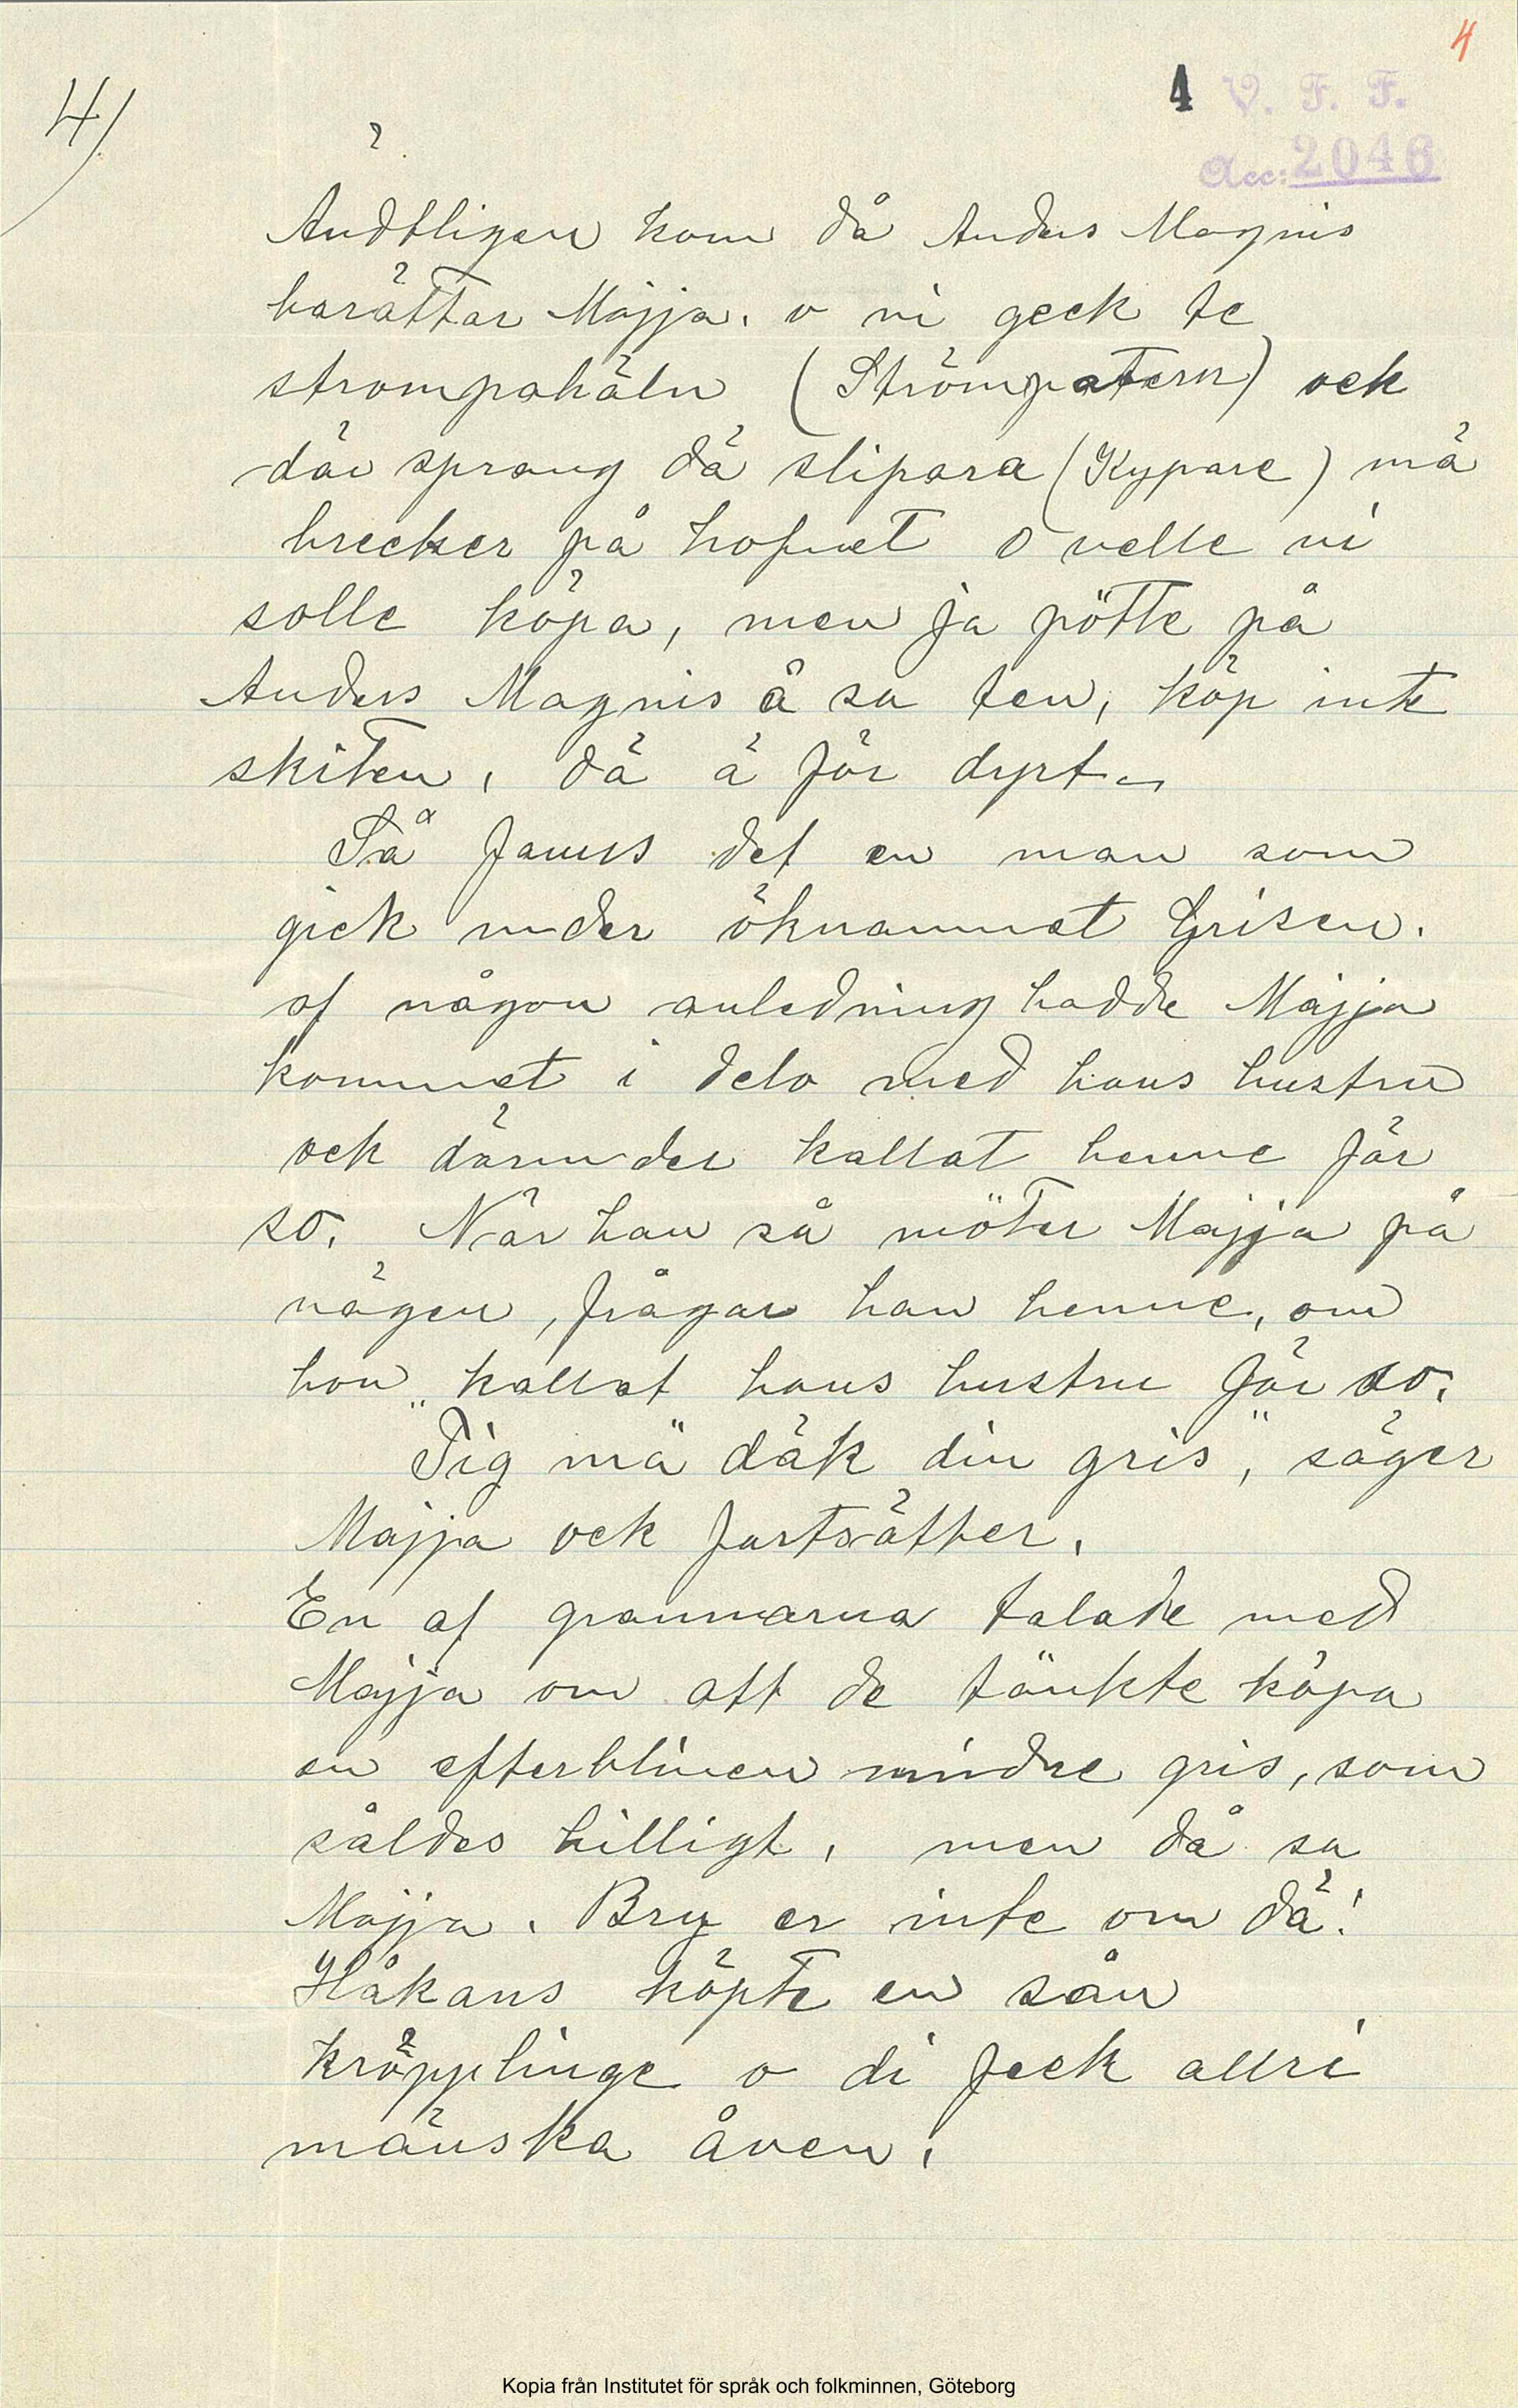 4
4 V. F. F.
Acc: 2046
4)
Ändtligen kom då Anders Magnis
barättar Majja. o vi geck te
strompahäln (Strömpatern) ock
där sprang dä slipara (Kypare) mä
brecker på hofvet o velle vi
solle köpa, men ja pötte på
Anders Magnis å sa ten, köp inte
skiten, dä ä för dyrt.
Så fanns det en man som
gick under öknamnet Grisen.
af någon anledning hadde Majja
kommet i delo med hans hustru
ock därunder kallat henne för
so. När han så möter Majja på
vägen, frågar han henne, om
hon kallat hans hustru för so.
"Tig mä däk din gris", säger
Majja ock fortsätter.
En af grannarna talade med
Majja om att de tänkte köpa
en efterbliven mindre gris, som
såldes billigt, men då sa
Majja. Bry er inte om dä!
Håkans köpte en sån
kröpplinge o di feck allri
mänska även.
Kopia från Institutet för språk och folkminnen, Göteborg